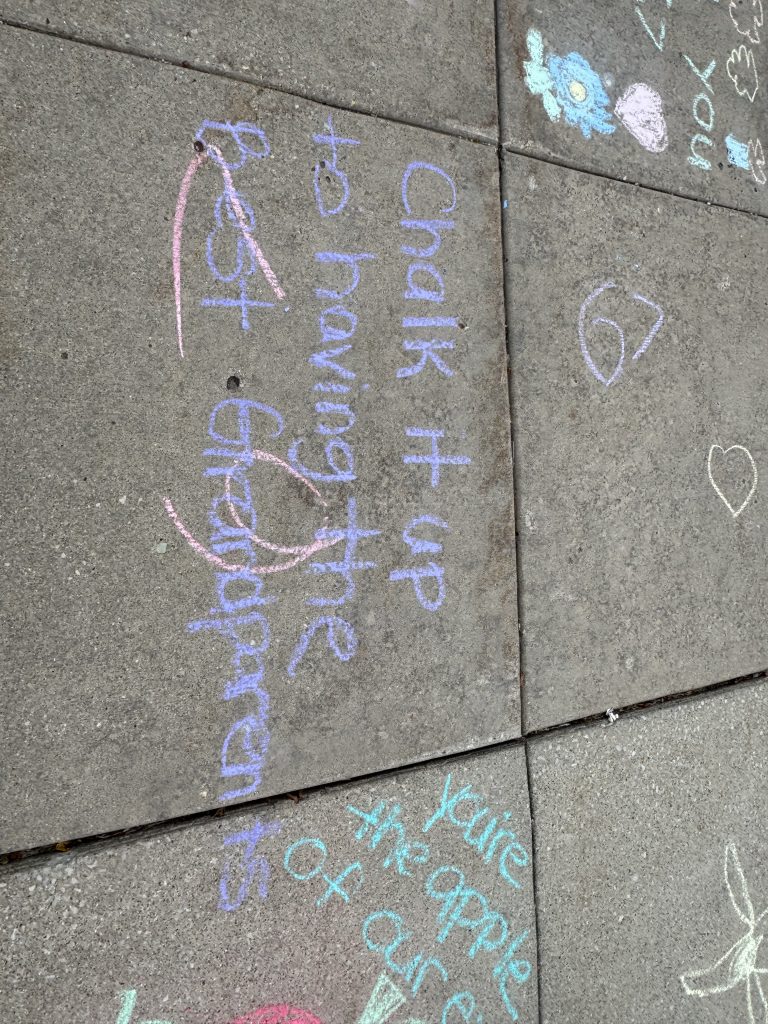 Chalk it up
to having the
Best Grandparents
you're
the apple
of our e
YOU